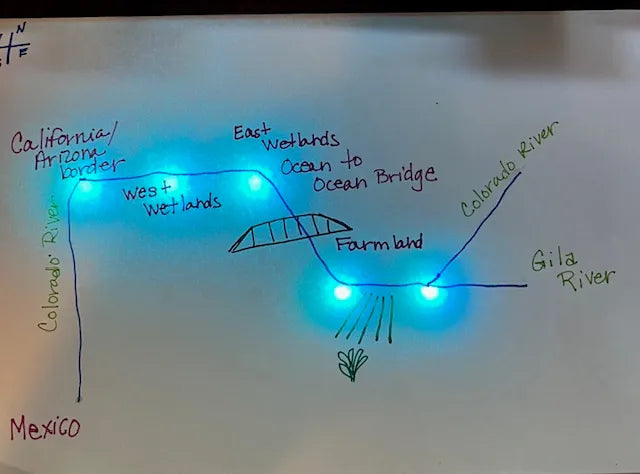 N
E
S
California/
Arizona
border
East
Wetlands
Ocean to
Ocean Bridge
West
Wetlands
Colorado River
Farmland
Colorado River
Gila
River
Mexico